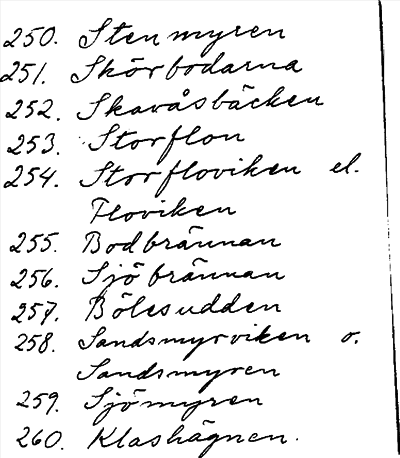 250. Stenmyren
251. Skörbodarna
252. Skavåsbäcken
253. Storflon
254. Storfloviken el.
Floviken
255. Bodbrännan
256. Sjöbrännan
257. Bölesudden
258. Sandsmyrviken o.
Sandsmyren
259. Sjömyren
260. Klashägnen.